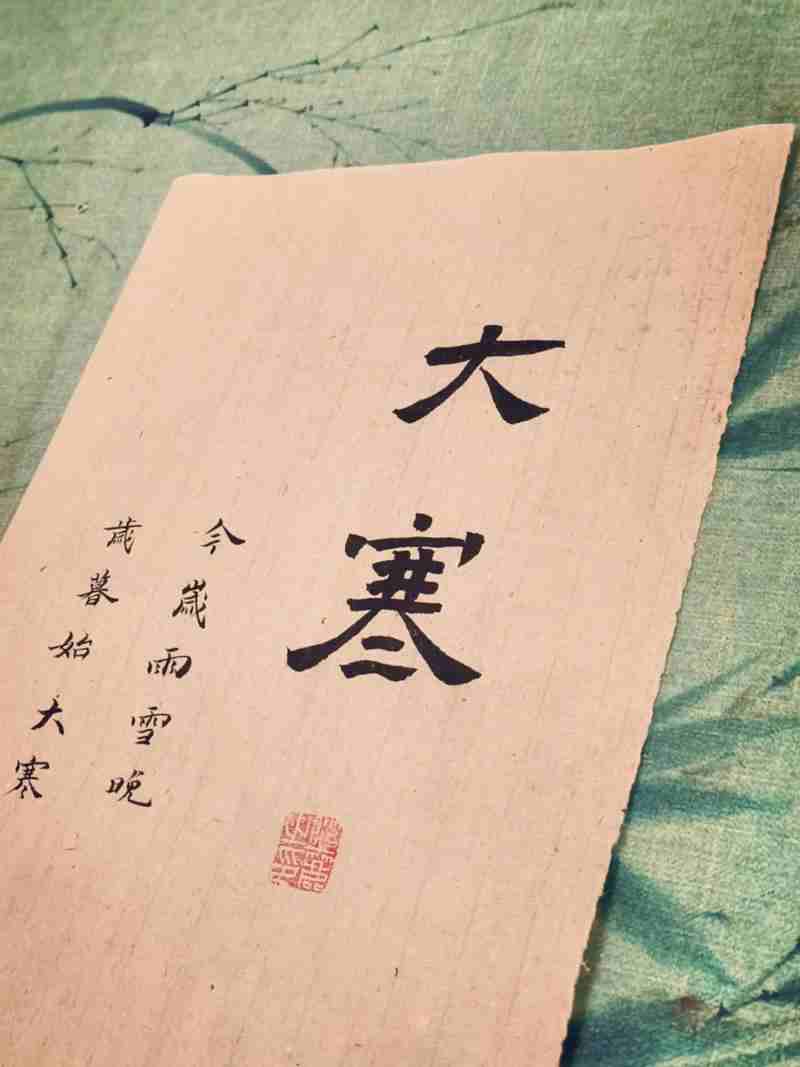 大寒
今歲雨雪晚
歲暮始大寒